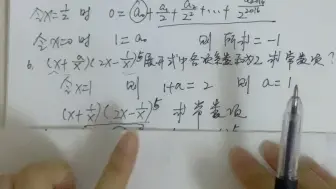 令x=1/2 则 0=a₀+a₁/2+a₂/2²+…+a₂₀₁₆/2²⁰¹⁶
令x=0则 1=a₀ 则 所求=-1
6. (x+a/x)(2x-1/x)⁵展开式中各项系数和为2 求常数项?
令x=1 则 1+a=2 则 a=1
(x+1/x)(2x-1/x)⁵ 求常数项